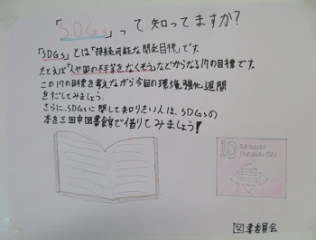 「SDGs」って知ってますか?
「SDGs」とは「持続可能な開発目標」です。
たとえば「人や国の不平等をなくそう」などからなる17の目標です。
この17の目標を考えながら今回の環境強化週間
をだしてみましょう。
さらに、SDGsに関して知りたい人は、SDGsの
本を三田中図書館で借りてみましょう!
10 REDUCED
INEQUALITIES
図書委員会